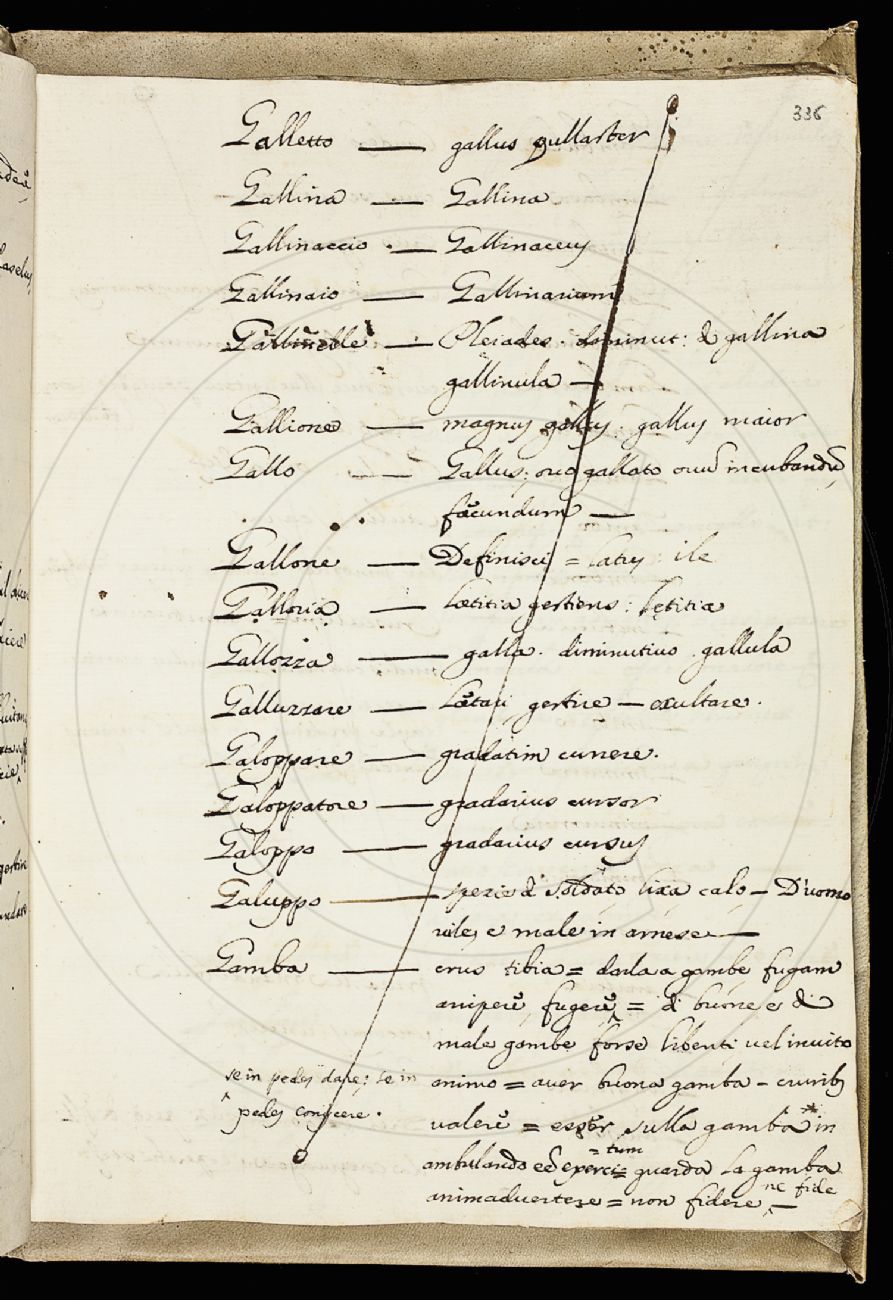 336
Galletto — gallus gullaster
Gallina — Gallina
Gallinaccio — Gallinaceus
Gallinaio — Gallinarium
Gallinelle — Pleiades. diminut: d gallina
gallinula —
Gallione — magnus gallus. gallus maior
Gallo — Gallus; ovo gallato ovū incubandū,
fæcundum —
Gallone — Definisci = latus ile
Galloria — lætitia gestiens: lętitia
Gallozza — galla. diminutivo gallula
Galluzzare — lætari, gestire — exultare.
Galoppare — gradatim currere.
Galoppatore — gradarius cursor
Galoppo — gradarius cursus
Galuppo — spezie di soldato, lixa calo — D'uomo
vile, e male in arnese —
Gamba — crus tibia = darla a gambe fugam
arripere, fugere, = di buone, e di
male gambe forse libenti vel invito
se in pedes dare; se in animo = aver buona gamba — cruribus
pedes conjicere. valere = esser sulla gamba in
= tum
ambulando ed guarda la gamba
animadvertere = non fidere, ne fide —